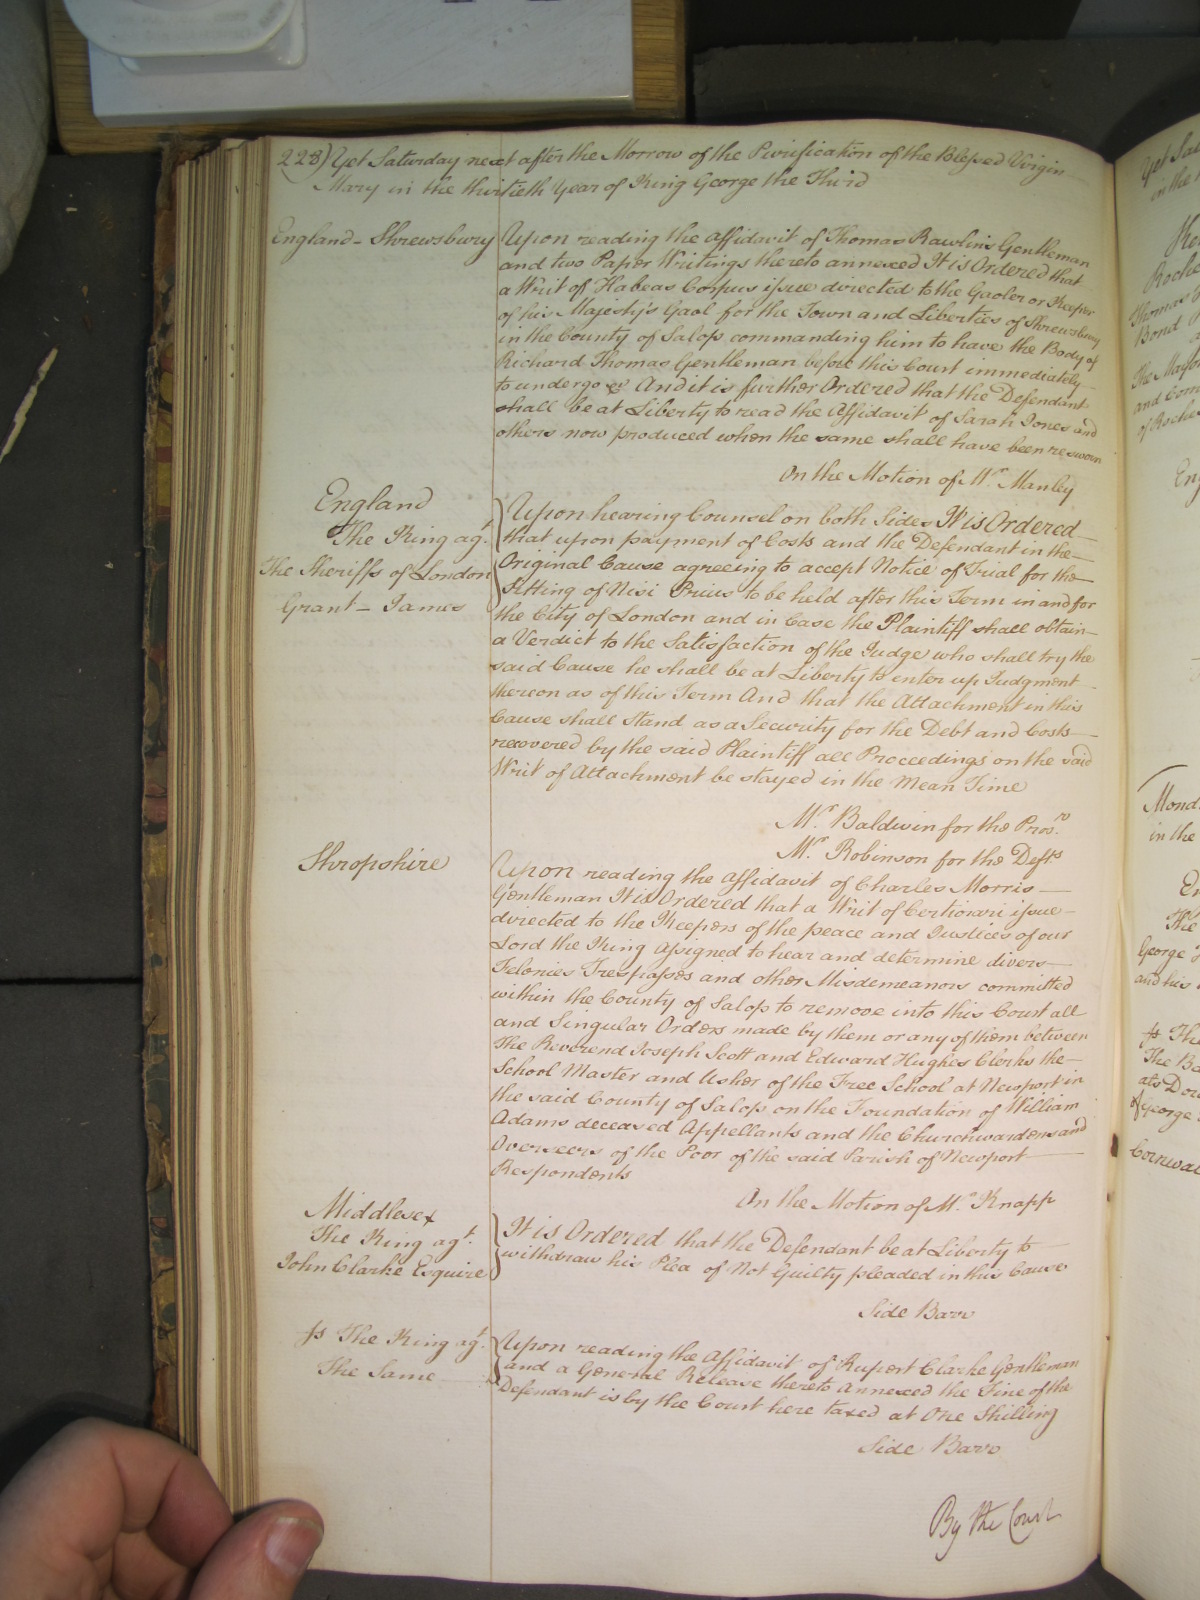 228) Yet Saturday next after the Morrow of the Purification of the Blessed Virgin
Mary in the thirtieth Year of King George the Third
England - Shrewsbury
Upon reading the Affidavit of Thomas Rawlins Gentleman
and two Paper Writings thereto annexed It is Ordered that
a Writ of Habeas Corpus issue directed to the Gaoler or Keeper
of his Majesty's Gaol for the Town and Liberties of Shrewsbury
in the County of Salop commanding him to have the Body of
Richard Thomas Gentleman before this Court immediately
to undergo &c And it is further Ordered that the Defendant
shall be at Liberty to read the Affidavit of Sarah Jones and
others now produced when the same shall have been resworn
On the Motion of Mr. Manley
England
The King agt.
The Sheriffs of London
Grant - James
Upon hearing Counsel on both Sides It is Ordered
that upon payment of Costs and the Defendant in the
Original Cause agreeing to accept Notice of Trial for the
Sitting of Nisi Prius to be held after this Term in and for
the City of London and in Case the Plaintiff shall obtain
a Verdict to the Satisfaction of the Judge who shall try the
said Cause he shall be at Liberty to enter up Judgment
thereon as of this Term And that the Attachment in this
Cause shall stand as a Security for the Debt and Costs
recovered by the said Plaintiff all Proceedings on the said
Writ of Attachment be stayed in the Mean Time
Mr. Baldwin for the Prosr.
Mr. Robinson for the Defts
Shropshire
Upon reading the Affidavit of Charles Morris
Gentleman It is Ordered that a Writ of Certiorari issue
directed to the Keepers of the peace and Justices of our
Lord the King Assigned to hear and determine divers
Felonies Trespasses and other Misdemeanors committed
within the County of Salop to remove into this Court all
and Singular Orders made by them or any of them between
The Reverend Joseph Scott and Edward Hughes Clerks the
School Master and Usher of the Free School at Newport in
the said County of Salop on the Foundation of William
Adams deceased Appellants and the Churchwardens and
Overseers of the Poor of the said Parish of Newport
Respondents
On the Motion of Mr. Knapp
Middlesex
The King agt.
John Clarke Esquire
It is Ordered that the Defendant be at Liberty to
withdraw his Plea of Not Guilty pleaded in this Cause
Side Barr
Js The King agt.
The Same
Upon reading the Affidavit of Rupert Clarke Gentleman
and a General Release thereto Annexed the Fine of the
Defendant is by the Court here taxed at One Shilling
Side Barr
By the Court
Yet Sat
in the
Roche
Thomas
Bond
The Mayor
and Com
of Roche
Eng
Mond
in the
En
The
George
and his
Js The
The Ba
ats Do
of George
Cornwal